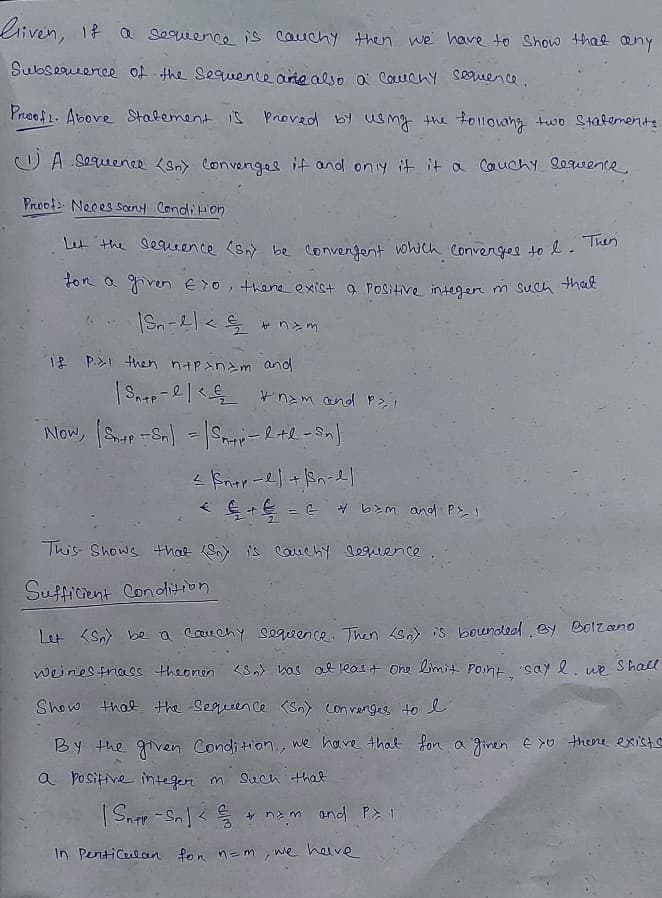 Given, If a sequence is cauchy then we have to show that any
Subsequence of the Sequence are also a cauchy sequence.
Proof:- Above Statement is Proved by using the following two Statements
(i) A Sequence <Sn> Converges if and only if it a Cauchy Sequence
Proof:- Necessary Condition
Let the Sequence <Sn> be convergent which converges to l. Then
for a given ε>0, there exist a positive integer m such that
|Sn-l| < ε/2 ∀ n≥m
If P≥1 then n+p>n≥m and
|Sn+p-l| < ε/2 ∀ n≥m and P≥1
Now, |Sn+p-Sn| = |Sn+p-l+l-Sn|
≤ |Sn+p-l|+|Sn-l|
< ε/2 + ε/2 = ε ∀ b≥m and P≥1
This Shows that <Sn> is cauchy Sequence.
Sufficient Condition
Let <Sn> be a Cauchy Sequence. Then <Sn> is bounded. By Bolzano
weinestrass theoren <Sn> has at least one limit Point, say l. we Shall
Show that the Sequence <Sn> converges to l
By the given Condition, we have that for a given ε>0 there exists
a positive integer m such that
|Sn+p-Sn| < ε/3 ∀ n≥m and P≥1
In Perticular for n=m, we have